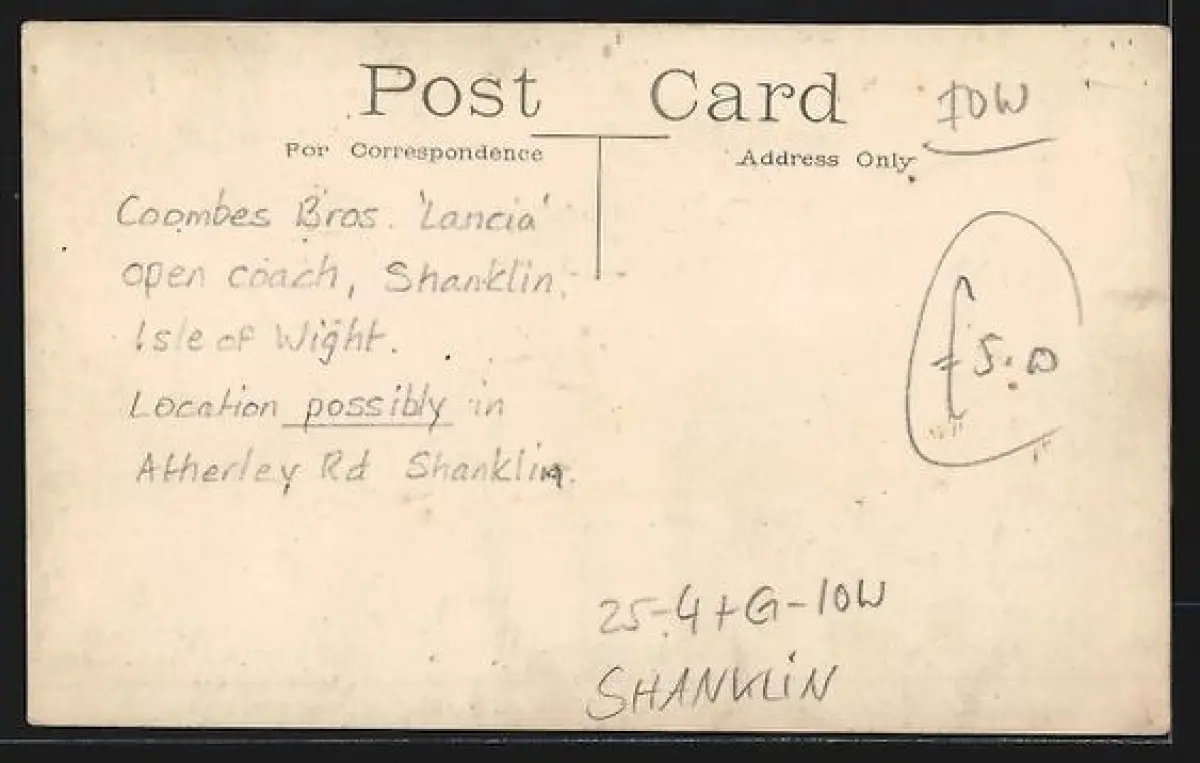 Post Card
IOW
For Correspondence
Address Only
Coombes Bros. 'Lancia'
open coach, Shanklin,
Isle of Wight.
Location possibly in
Atherley Rd Shanklin.
£5.0
25-4+G-IOW
SHANKLIN